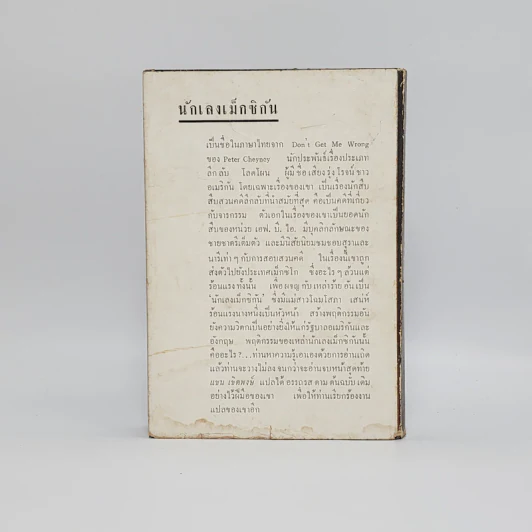 นักเลงเม็กซิกัน
เป็นชื่อในภาษาไทยจาก Don't Get Me Wrong
ของ Peter Cheyney นักประพันธ์เรื่องประเภท
ลึกลับ โลดโผน ผู้มีชื่อเสียงรุ่งโรจน์ ชาว
อเมริกัน โดยเฉพาะเรื่องของเขา เป็นเรื่องนักสืบ
สืบสวนคดีลึกลับที่น่าสมัยที่สุด คือเป็นคดีที่เกี่ยว
กับจารกรรม ตัวเอกในเรื่องของเขาเป็นยอดนัก
สืบของหน่วย เอฟ. บี. ไอ. มีบุคลิกลักษณะของ
ชายชาตรีเต็มตัว และมีนิสัยนิยมชมชอบสุราและ
นารีเท่า ๆ กับการสอบสวนคดี ในเรื่องนี้เขาถูก
ส่งตัวไปยังประเทศเม็กซิโก ซึ่งอะไร ๆ ล้วนแต่
ร้อนแรงทั้งนั้น เพื่อผจญกับเหล่าร้าย อันเป็น
'นักเลงเม็กซิกัน' ซึ่งมีแม่สาวโฉมโสภา เสน่ห์
ร้อนแรงนางหนึ่งเป็นหัวหน้า สร้างพฤติกรรมอัน
ยังความวิตกเป็นอย่างยิ่งให้แก่รัฐบาลอเมริกันและ
อังกฤษ พฤติกรรมของเหล่านักเลงเม็กซิกันนั้น
คืออะไร?...ท่านหาความรู้เอาเองด้วยการอ่านเถิด
แล้วท่านจะวางไม่ลงจนกว่าจะอ่านจบหน้าสุดท้าย
เชิดพงษ์ แปลได้อรรถรสตามต้นฉบับเดิม
อย่างไว้ฝีมือของเขา เพื่อให้ท่านเรียกร้องงาน
แปลของเขาอีก